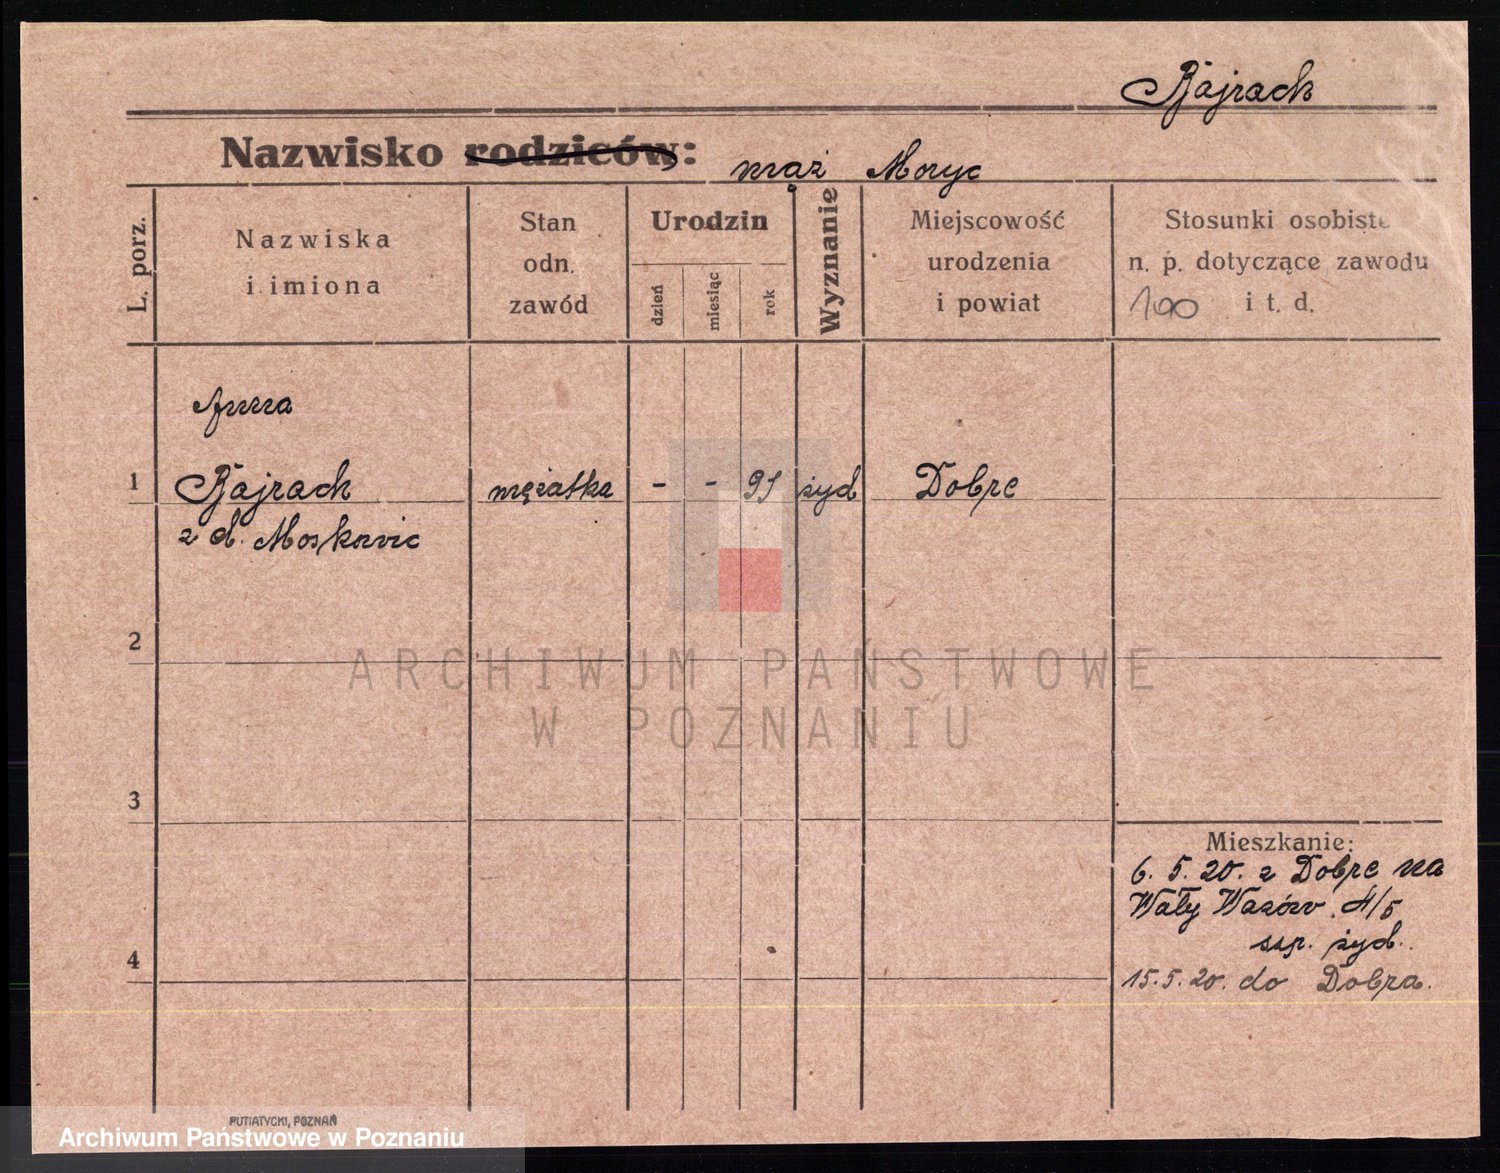 Bajrach
Nazwisko rodziców: mąż Moryc
L. porz.
Nazwiska
i imiona
Stan
odn.
zawód
Urodzin
dzień
miesiąc
rok
Wyznanie
Miejscowość
urodzenia
i powiat
Stosunki osobiste
n. p. dotyczące zawodu
i t. d.
100
Anna
1 Bajrach mężatka - - 91 żyd Dobre
z d. Moskovic
2
3
4
Mieszkanie:
6. 5. 20. z Dobre na
Wały Wazów 4/5
szp. żyd.
15. 5. 20. do Dobra.
ARCHIWUM PAŃSTWOWE
W POZNANIU
PUTIATYCKI, POZNAŃ
Archiwum Państwowe w Poznaniu